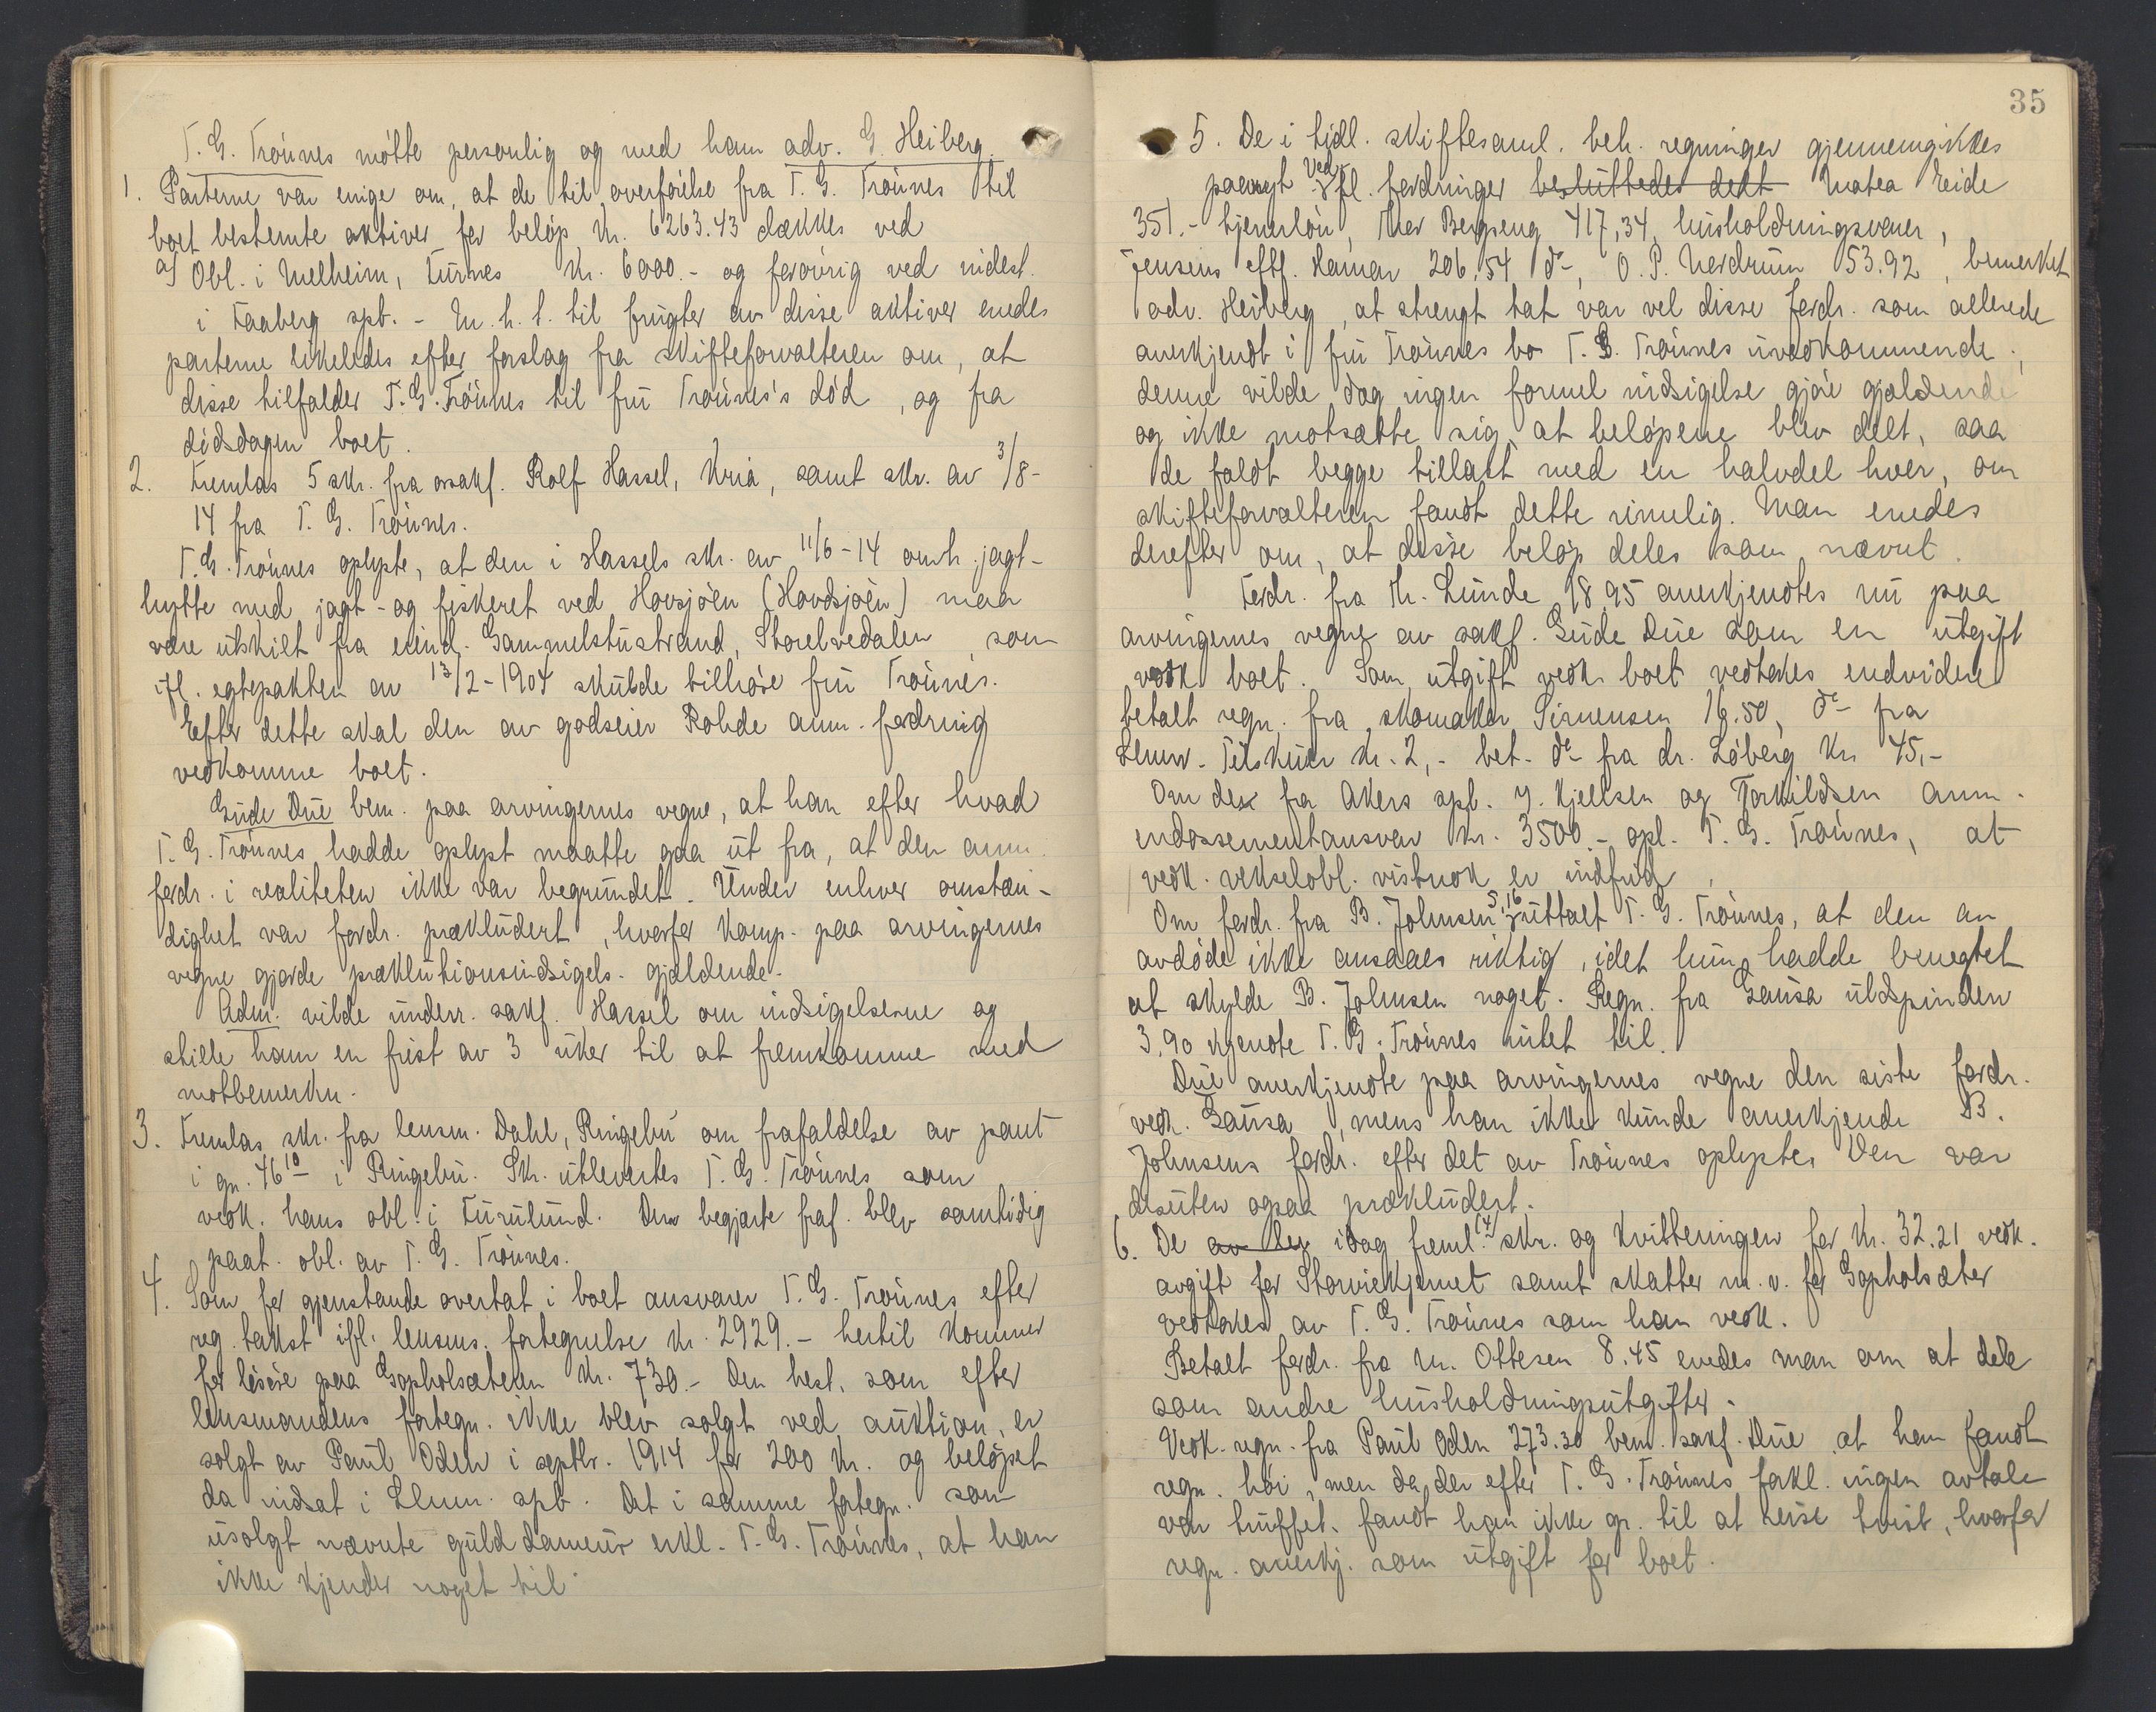 T. G. Trönnes mötte personlig og med ham adv. G. Heiberg.
1. Parterne var enige om, at de til overförelse fra T. G. Trönnes til
boet bestemte aktiver for beløp kr. 6263.43 dækkes ved
a) Obl. i Melheim, Furnes kr. 6000.- og forövrig ved indest.
i Faaberg spb. - M. h. t. til frugter av disse aktiver enedes
parterne likeledes efter forslag fra skifteforvalteren om, at
disse tilfalder T. G. Trönnes til frú Trönnes's död, og fra
dödsdagen boet.
2. Fremlas 5 skr. fra o.r.sakf. Rolf Hassel, Kria, samt skr. av 3/8-
14 fra T. G. Trönnes.
T. G. Trönnes oplyste, at den i Hassels skr. av 11/6-14 omh. jagt-
hytte med jagt- og fiskeret ved Hovsjöen (Hovdsjöen) maa
være utskilt fra eiend. Gammelstustrand, Storelvedalen, som
ifl. egtepakten av 13/2-1904 skulde tilhöre frú Trönnes.
Efter dette skal den av godseier Rohde anm. fordring
vedkomme boet.
Gude Due bem. paa arvingernes vegne, at han efter hvad
T. G. Trönnes hadde oplyst maatte gaa út fra, at den anm.
fordr. i realiteten ikke var begrundet. Under enhver omstæn-
dighet var fordr. prækludert, hvorfor komp. paa arvingernes
vegne gjorde præklutionsindsigels. gjældende.
Adm. vilde underr. sakf. Hassel om indsigelserne og
stille ham en frist av 3 uker til at fremkomme med
motbemerkn.
3. Fremlas skr. fra lensm. Dahl, Ringebu om frafaldelse av pant
i gn. 46 10 i Ringebu. Skr. utlevertes T. G. Trönnes som
vedk. hans obl. i Furulund. Den begjærte fraf. blev samtidig
paat. obl. av T. G. Trönnes.
4. Som for gjenstande overtat i boet ansvarer T. G. Trönnes efter
reg. takst ifl. lensms. fortegnelse kr. 2929.- hertil kommer
for lösöre paa Gopholsæteren kr. 730.- Den hest, som efter
lensmandens fortegn. ikke blev solgt ved auktion, er
solgt av Paul Oden i septbr. 1914 for 200 kr. og belöpet
da indsat i Lhmr. spb. Det i samme fortegn. som
usolgt nævnte gulddameur erkl. T. G. Trönnes, at han
ikke kjender noget til.
35
5. De i tidl. skiftesaml. beh. regninger gjennemgikkes
paanyt Ved fl. fordringer besluttedes delt Matea Eide
351.- tjenerlön, Mar Bergseng 417,34, husholdningsvarer,
Jensens eftf. Hamar 206.54 do, O. P. Nordrum 53.92, bemerket
adv. Heiberg, at strengt tat var vel disse fordr. som allerede
anerkjendt i frú Trönnes bo T. G. Trönnes uvedkommende;
denne vilde dog ingen formel indsigelse gjöre gjældende
og ikke motsætte sig, at belöpene blev delt, saa
de faldt begge tillast med en halvdel hver, om
skifteforvalteren fandt dette rimelig. Man enedes
derefter om, at disse belöp deles som nævnt.
Fordr. fra Kr. Lunde 18.95 anerkjendtes nu paa
arvingernes vegne av sakf. Gude Due som en utgift
vedk boet. Som utgift vedk. boet vedtokes endvidere
betalt regn. fra skomaker Simensen 16.50, do fra
Lhmr. Tilskuer kr. 2,- bet. do fra dr. Löberg kr 45,-
Om det fra Akers spb. y. Kjellsen og Torkildsen anm.
endossementansvar kr. 3500.- opl. T. G. Trönnes, at
vedk. vekselobl. vistnok er indfrid.
Om fordr. fra B. Johnsen 5,16 uttalt T. G. Trönnes, at den av
avdöde ikke ansaaes riktig, idet hun hadde benegtet
at skylde B. Johnsen noget. Regn. fra Gausa uldspinderi
3.90 kjendte T. G. Trönnes intet til.
Due anerkjendte paa arvingernes vegne den siste fordr.
vedk. Gausa, mens han ikke kunde anerkjende B.
Johnsens fordr. efter det av Trönnes oplyste. Den var
desuten ogsaa prækludert.
6. De av den idag freml. (4) skr. og kvitteringer for kr. 32.21 vedk.
avgift for Storviekjernet samt skatter m. v. for Gopholsæter
vedtokes av T. G. Trönnes som ham vedk.
Betalt fordr. fra M. Ottesen 8.45 enedes man om at dele
som andre husholdningsutgifter.
Vedk. regn. fra Paul Oden 273.30 bem. sakf. Due at han fandt
regn. höi, men da der efter T. G. Trönnes forkl. ingen avtale
var truffet, fandt han ikke gr. til at reise tvist, hvorfor
regn. anerkj. som utgift for boet.